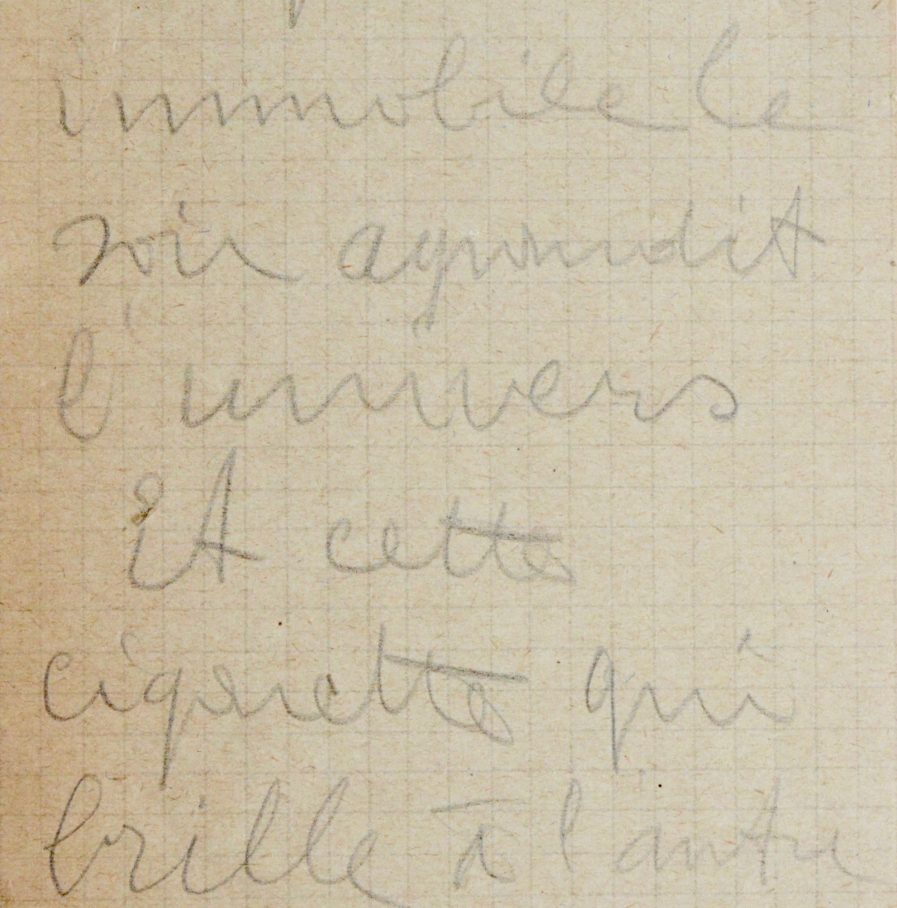 immobile le
soir agrandit
l'univers
Et cette
cigarette qui
brille à l'autre